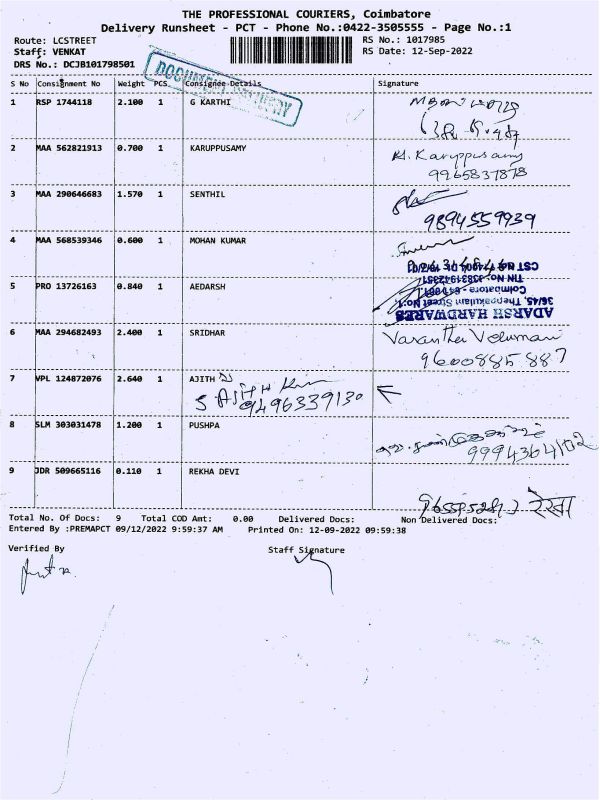 THE PROFESSIONAL COURIERS, Coimbatore
Delivery Runsheet - PCT - Phone No.:0422-3505555 - Page No.:1
Route: LCSTREET RS No.: 1017985
Staff: VENKAT RS Date: 12-Sep-2022
DRS No.: DCJB101798501
DOCUMENT DELIVERY
S No Consignment No Weight PCS Consignee Details Signature
1 RSP 1744118 2.100 1 G KARTHI
2 MAA 562821913 0.700 1 KARUPPUSAMY K. Karuppusamy
9965837878
3 MAA 290646683 1.570 1 SENTHIL
9894559939
4 MAA 568539346 0.600 1 MOHAN KUMAR
5 PRO 13726163 0.840 1 AEDARSH
ADARSH HARDWARES
36/45, Theppakulam Street No:1,
Coimbatore - 641 001
6 MAA 294682493 2.400 1 SRIDHAR
9600885887
7 VPL 124872076 2.640 1 AJITH
S AJITH
9496339130
8 SLM 303031478 1.200 1 PUSHPA
9994364102
9 JDR 509665116 0.110 1 REKHA DEVI
रेखा
Total No. Of Docs: 9 Total COD Amt: 0.00 Delivered Docs: Non Delivered Docs:
Entered By :PREMAPCT 09/12/2022 9:59:37 AM Printed On: 12-09-2022 09:59:38
Verified By Staff Signature